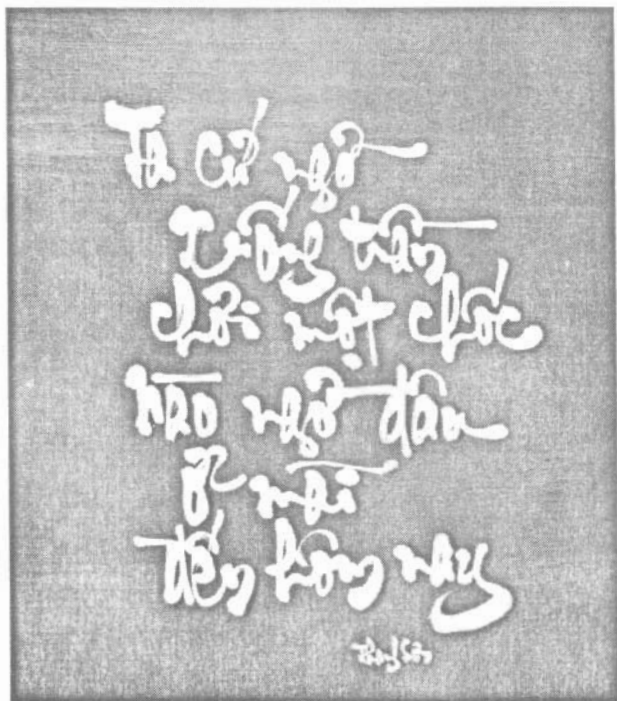 Ta cứ ngỡ
xuống trần
chơi một chốc
nào ngờ đâu
ở mãi
đến hôm nay